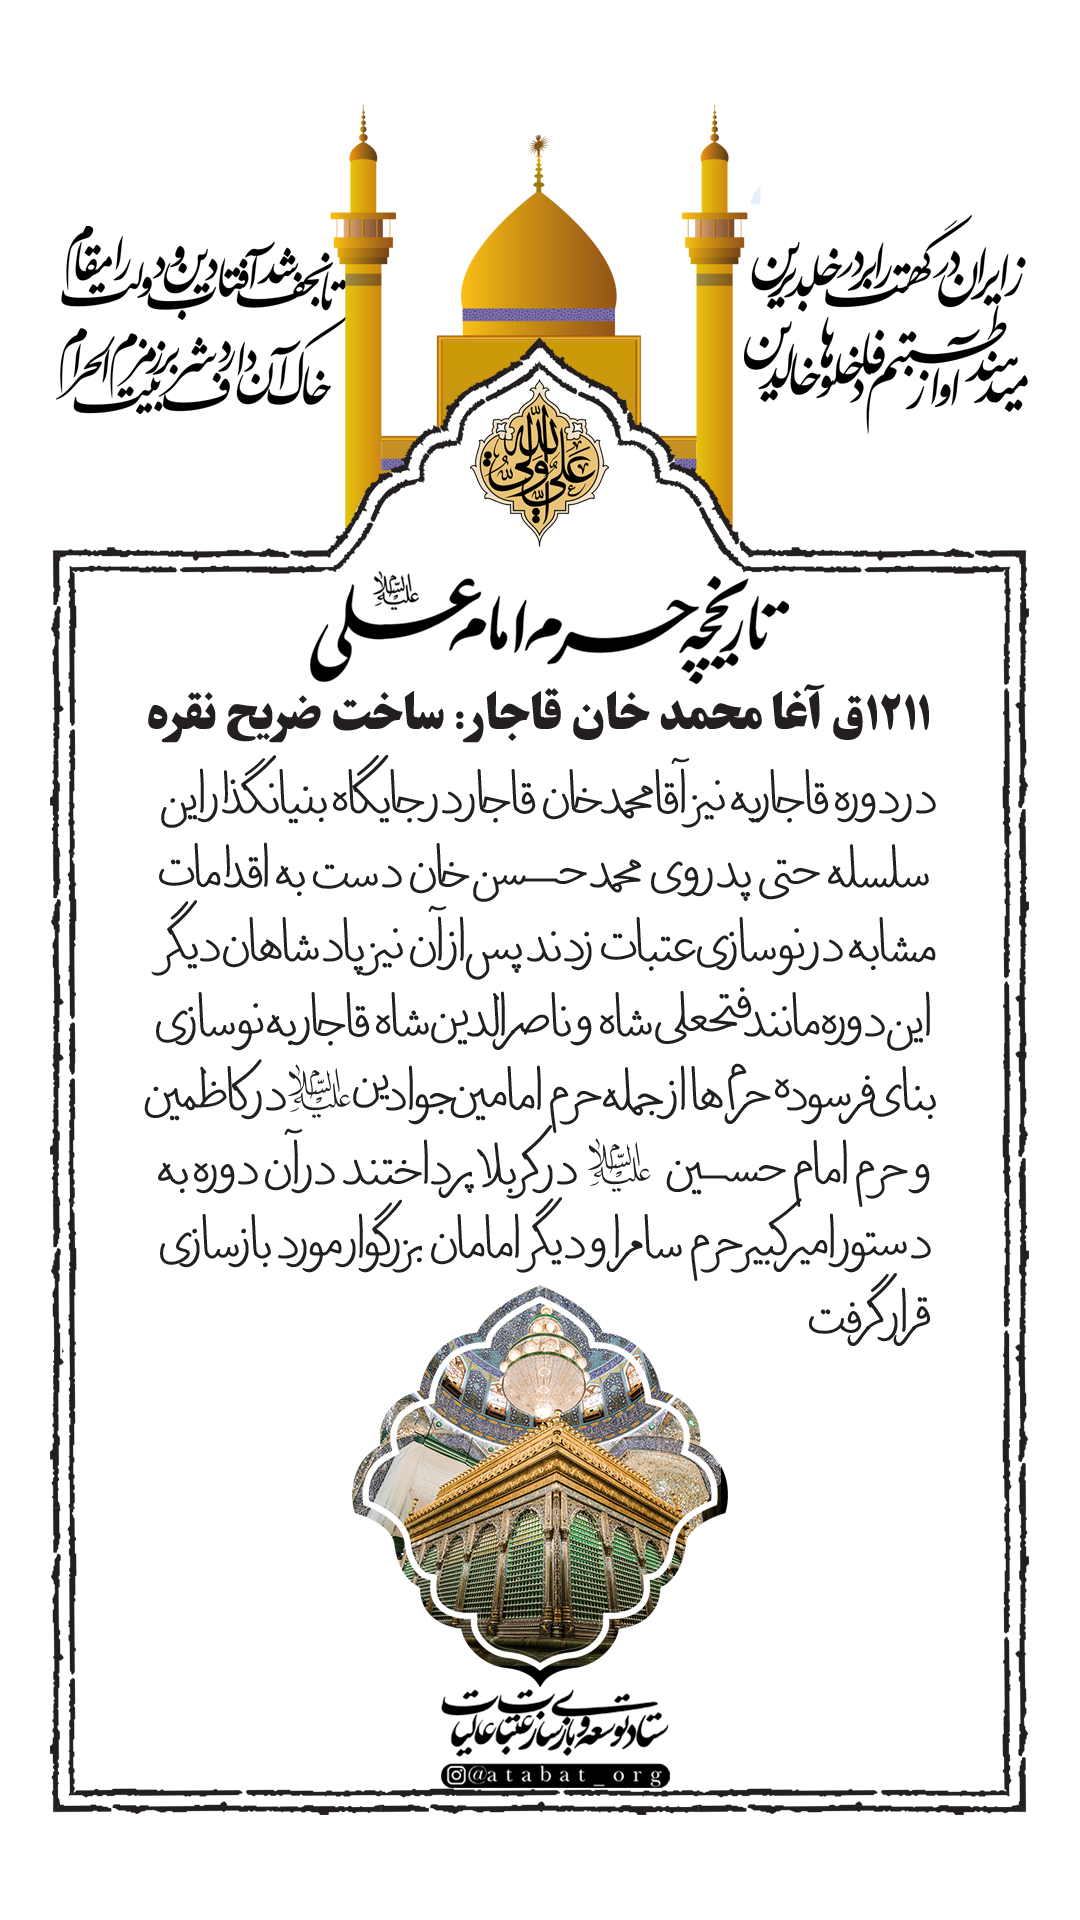 ز ایران درگهت را بر در خلد برین
میدهند آواز طبتم فادخلوها خالدین
تا نجف شد آفتاب دین و دولت را مقام
خاک آن دارد شرف بر زمزم بیت الحرام
علی ولی الله
تاریخچه حرم امام علی علیه السلام
۱۲۱۱ق آغا محمد خان قاجار: ساخت ضریح نقره
در دوره قاجاریه نیز آقامحمدخان قاجار در جایگاه بنیانگذار این
سلسله حتی پدر وی محمد حسن خان دست به اقدامات
مشابه در نوسازی عتبات زدند پس از آن نیز پادشاهان دیگر
این دوره مانند فتحعلی شاه و ناصرالدین شاه قاجار به نوسازی
بنای فرسوده حرم ها از جمله حرم امامین جوادین علیه السلام در کاظمین
و حرم امام حسین علیه السلام در کربلا پرداختند در آن دوره به
دستور امیرکبیر حرم سامرا و دیگر امامان بزرگوار مورد بازسازی
قرار گرفت
ستاد توسعه و بازسازی عتبات عالیات
@atabat_org